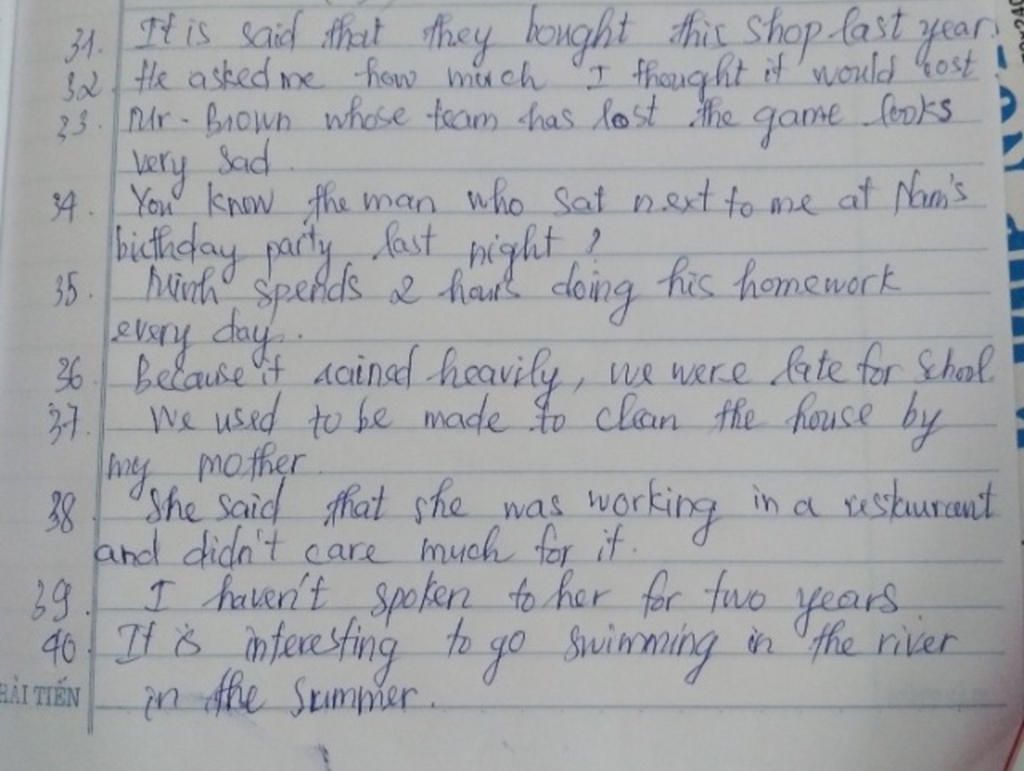 31. It is said that they bought this shop last year.
32. He asked me how much I thought it would cost
33. Mr. Brown whose team has lost the game looks
very sad.
34. You know the man who sat next to me at Nam's
birthday party last night?
35. Minh spends 2 hours doing his homework
every day.
36. Because it rained heavily, we were late for school
37. We used to be made to clean the house by
my mother.
38. She said that she was working in a restaurant
and didn't care much for it.
39. I haven't spoken to her for two years
40. It is interesting to go swimming in the river
HẢI TIẾN in the summer.